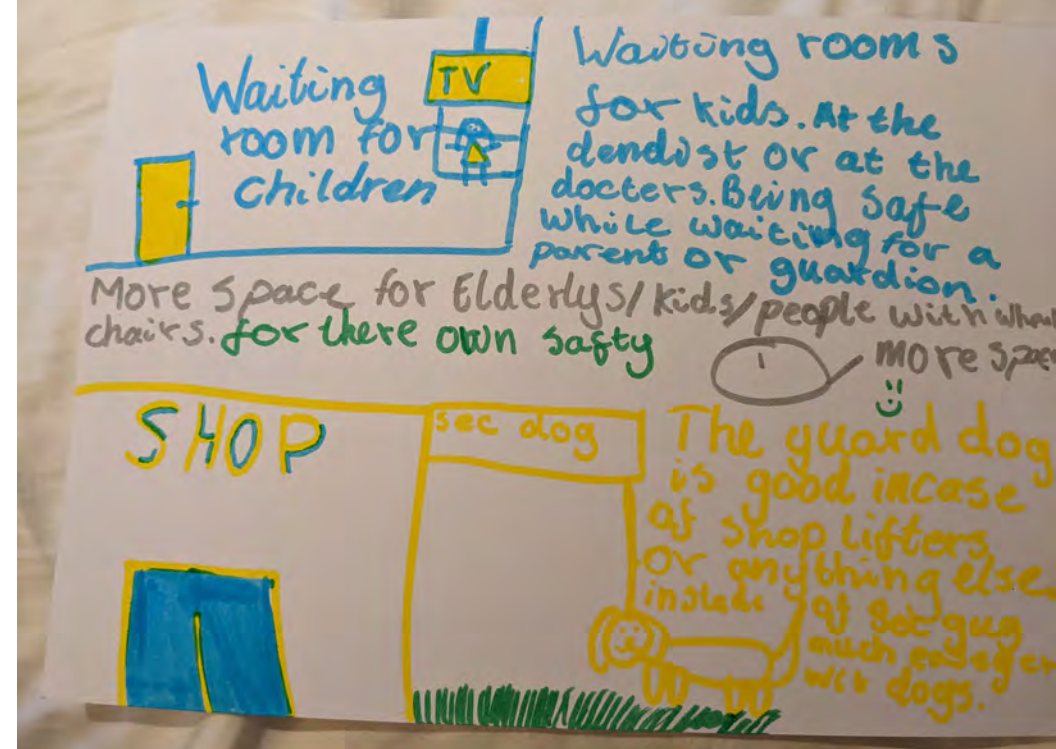 Waiting
room for
children
TV
Waiting rooms
for kids. At the
dendist or at the
docters. Being safe
while waiting for a
parent or guardion.
More space for Elderlys/kids/people with
chairs. for there own safty
more space
SHOP
sec dog
The guard dog
is good incase
of shop lifters
or anything else.
instade of sec guy
much
dogs.